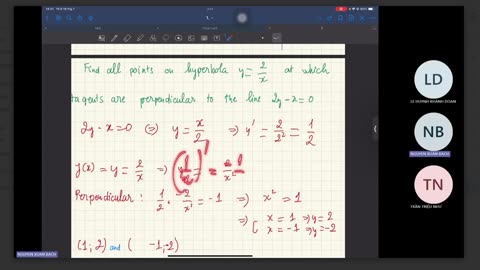 Find all points on hyperbola y = 2/x at which
tagents are perpendicular to the line 2y - x = 0
2y - x = 0 (=) y = x/2 => y' = 2/2² = 1/2
f(x) = y = 2/x =>
Perpendicular : 1/2 . -2/x² = -1 => x² = 1
=> [ x = 1 => y = 2
x = -1 => y = -2
(1; 2) and ( -1; -2)
LD
LE HUYNH KHANH DOAN
NB
NGUYEN DOAN BACH
TN
TRẦN TRIỆU NHƯ
NGUYEN DOAN BACH